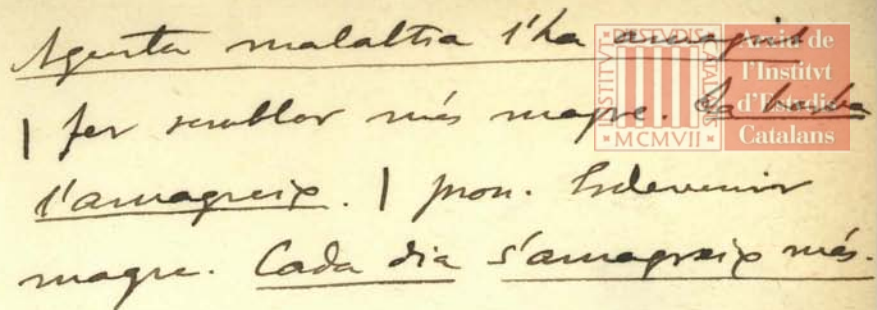 Aquesta malaltia l'ha amagrit
| fer semblar més magre. La barba
l'amagreix. | pron. Esdevenir
magre. Cada dia s'amagreix més.
Arxiu de
l'Institvt
d'Estudis
Catalans
INSTITVT D'ESTVDIS CATALANS
MCMVII